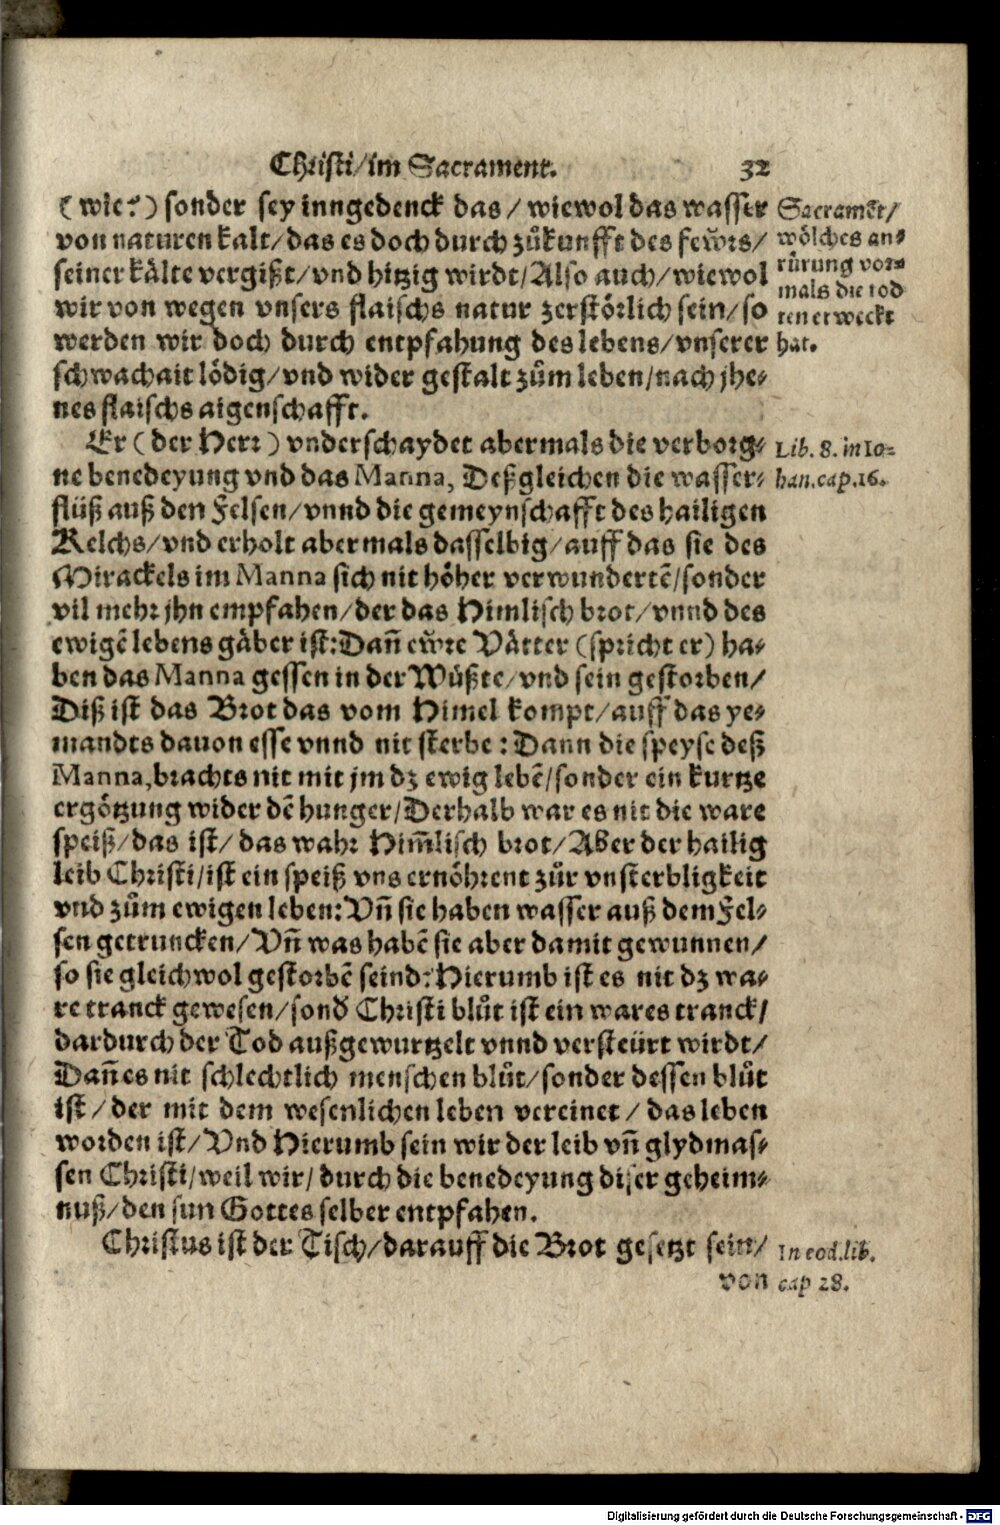 Christi/im Sacrament. 32
(wie?) sonder sey inngedenck das/ wiewol das wasser
von naturen kalt/das es doch durch zůkunfft des fewrs/
seiner kälte vergißt/vnd hitzig wirdt/Also auch/wiewol
wir von wegen vnsers flaischs natur zerstörlich sein/so
werden wir doch durch entpfahung des lebens/vnserer
schwachait lödig/vnd wider gestalt zům leben/nach jhe-
nes flaischs aigenschafft.
Sacramẽt/
wölches an-
rürung vor-
mals die tod
ten erweckt
hat.
Er (der Herr) vnderschaydet abermals die verborg-
ne benedeyung vnd das Manna, Deßgleichen die wasser-
flüß auß den Felsen/vnnd die gemeynschafft des hailigen
Kelchs/vnd erholt abermals dasselbig/auff das sie des
Mirackels im Manna sich nit höher verwundertẽ/sonder
vil mehr jhn empfahen/der das Himlisch brot/vnnd des
ewigẽ lebens gäber ist:Dañ ewre Vätter (spricht er) ha-
ben das Manna gessen in der Wüßte/vnd sein gestorben/
Diß ist das Brot das vom Himel kompt/auff das ye-
mandts dauon esse vnnd nit sterbe : Dann die speyse deß
Manna,brachts nit mit jm dz ewig lebẽ/sonder ein kurtze
ergötzung wider dẽ hunger/Derhalb war es nit die ware
speiß/das ist/ das wahr Him̃lisch brot/Aber der hailig
leib Christi/ist ein speiß vns ernöhrent zůr vnsterbligkeit
vnd zům ewigen leben:Vñ sie haben wasser auß dem Fel-
sen getruncken/Vñ was habẽ sie aber damit gewunnen/
so sie gleichwol gestorbẽ seind:Hierumb ist es nit dz wa-
re tranck gewesen/sond̃ Christi blůt ist ein wares tranck/
dardurch der Tod außgewurtzelt vnnd versteürt wirdt/
Dañ es nit schlechtlich menschen blůt/sonder dessen blůt
ist/der mit dem wesenlichen leben vereinet/das leben
worden ist/Vnd Hierumb sein wir der leib vñ glydmas-
sen Christi/weil wir/ durch die benedeyung diser geheim-
nuß/den sun Gottes selber entpfahen.
Lib. 8. in Io-
han.cap.16.
Christus ist der Tisch/darauff die Brot gesetzt sein/
von
In eod.lib.
cap 28.
Digitalisierung gefördert durch die Deutsche Forschungsgemeinschaft - DFG